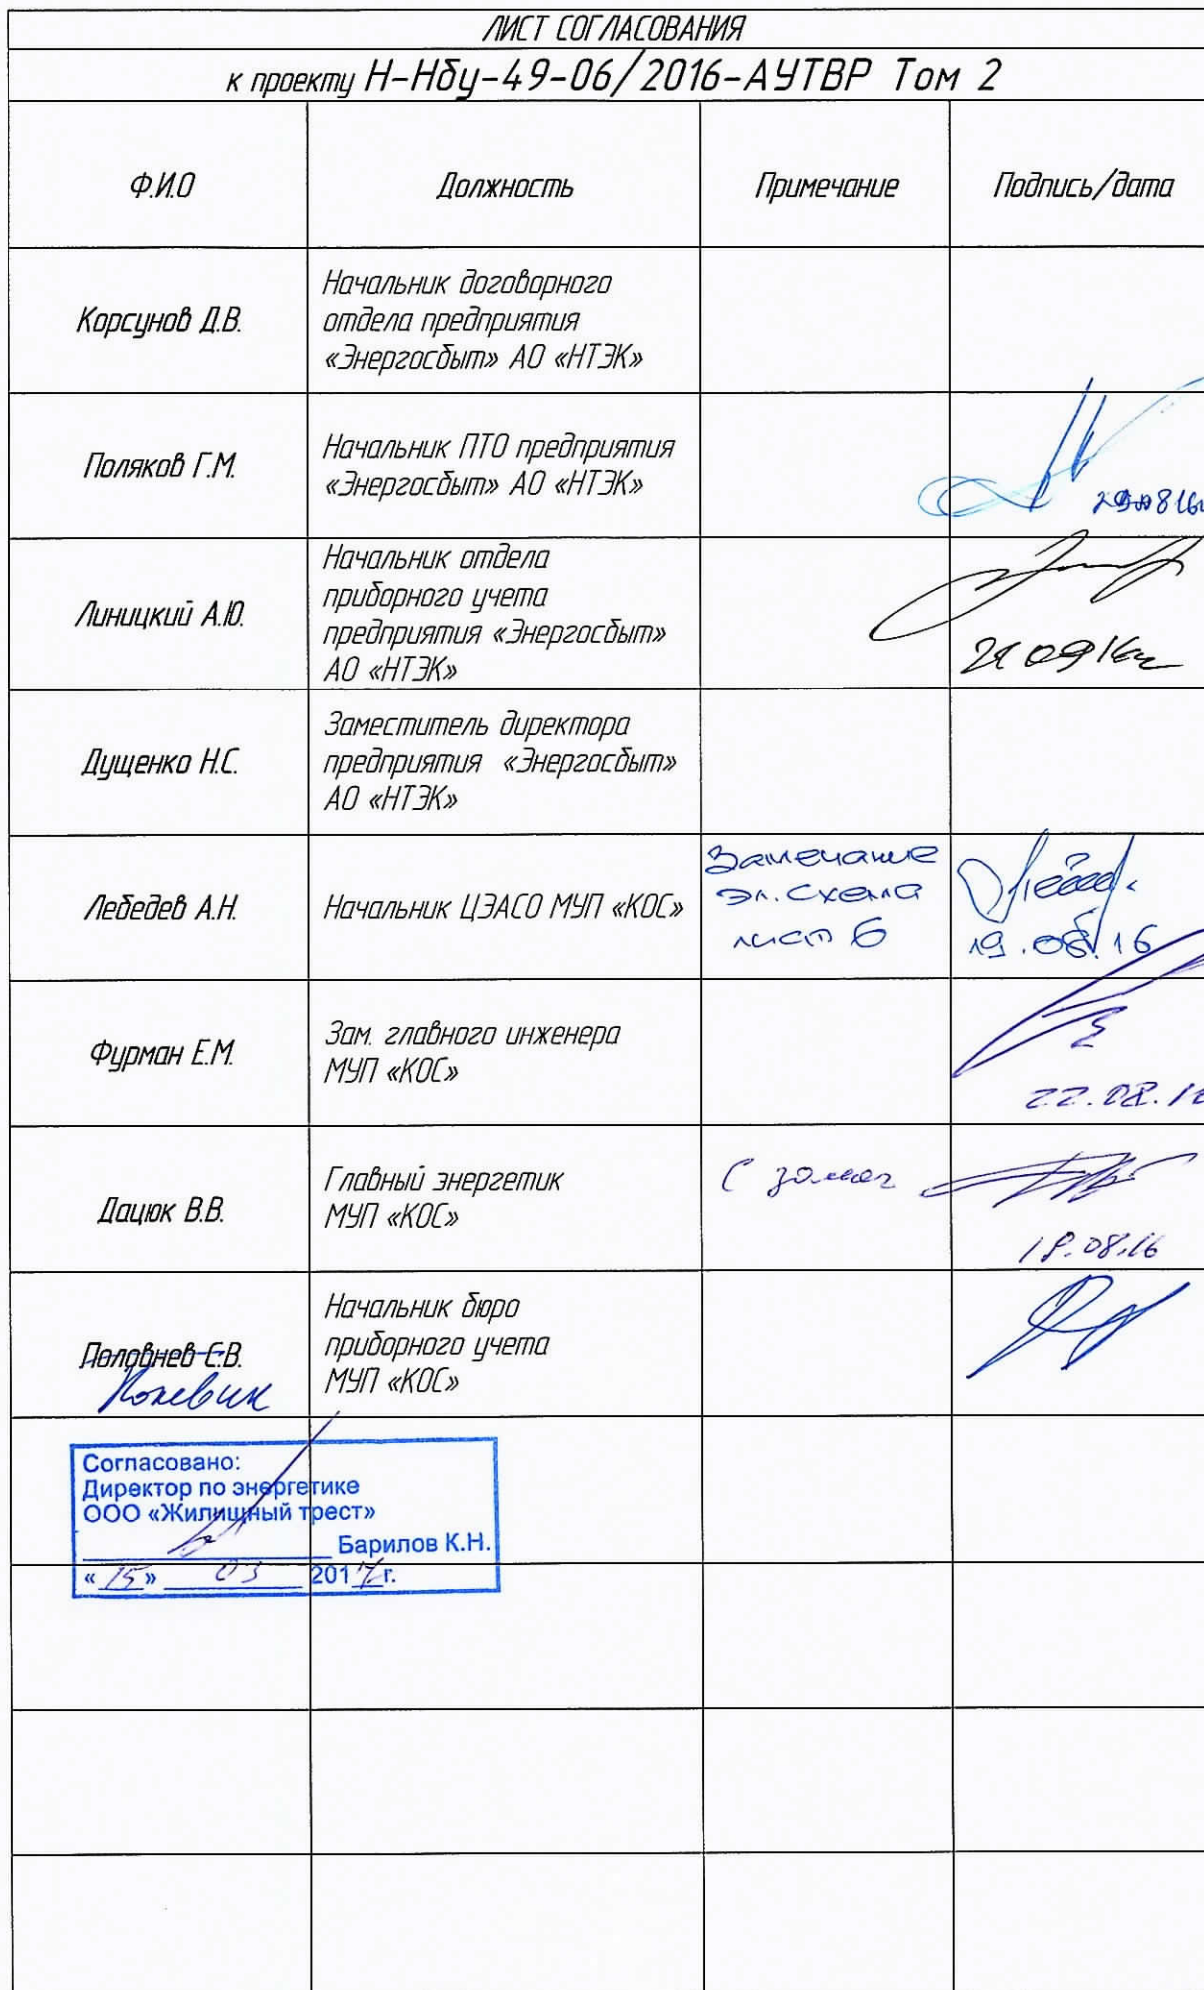 ЛИСТ СОГЛАСОВАНИЯ
к проекту Н-Нбу-49-06/2016-АУТВР Том 2
Ф.И.О
Должность
Примечание
Подпись/дата
Корсунов Д.В.
Начальник договорного
отдела предприятия
«Энергосбыт» АО «НТЭК»
Поляков Г.М.
Начальник ПТО предприятия
«Энергосбыт» АО «НТЭК»
Линицкий А.Ю.
Начальник отдела
приборного учета
предприятия «Энергосбыт»
АО «НТЭК»
Дущенко Н.С.
Заместитель директора
предприятия «Энергосбыт»
АО «НТЭК»
Лебедев А.Н.
Начальник ЦЭАСО МУП «КОС»
Замечание
Эл. схема
лист 6
19.08.16
Фурман Е.М.
Зам. главного инженера
МУП «КОС»
22.08.1
Дацюк В.В.
Главный энергетик
МУП «КОС»
С замеч
18.08.16
Половнев С.В.
Начальник бюро
приборного учета
МУП «КОС»
Согласовано:
Директор по энергетике
ООО «Жилищный трест»
Барилов К.Н.
«15» 03 2017г.